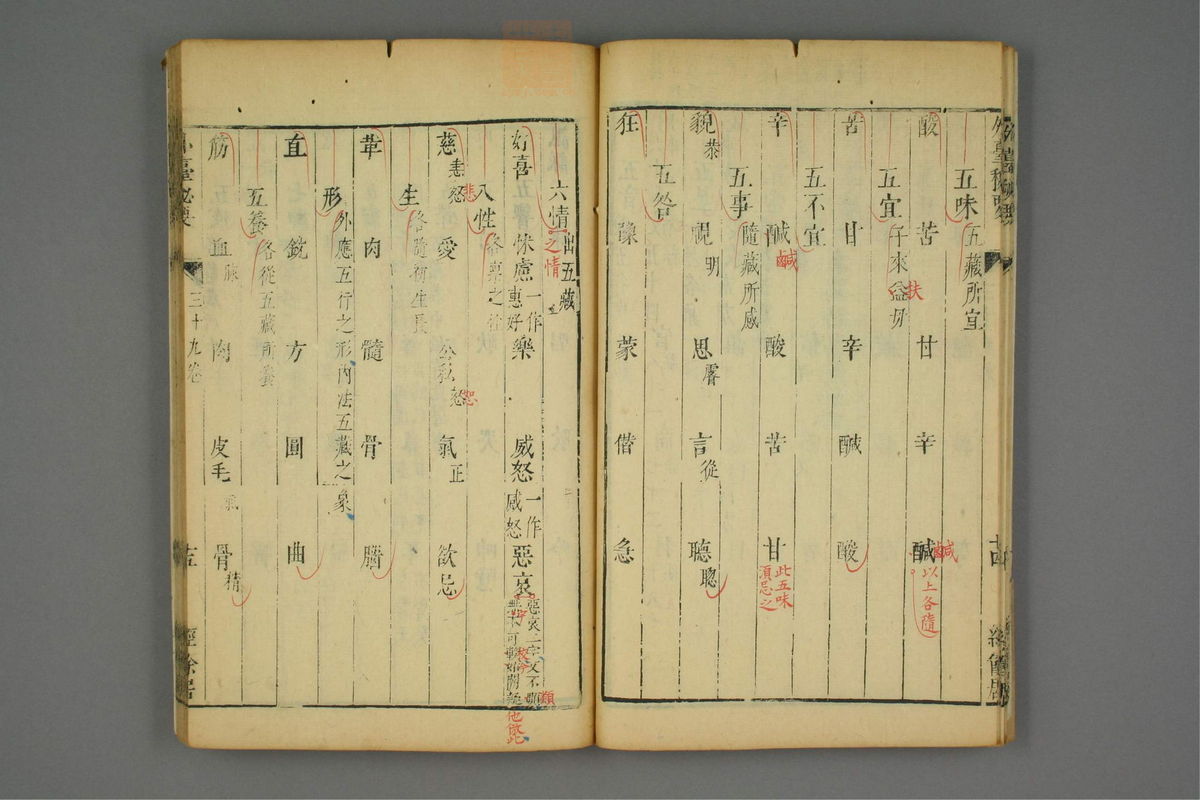 五味 五藏所宜
酸 苦 甘 辛 醎 鹹 以上各隨
五宜 子來益母 扶
苦 甘 辛 醎 酸
五不宜
辛 醎 鹹 酸 苦 甘 此五味須忌之
五事 隨藏所感
貌恭 視明 思睿 言從 聽聰
五咎
狂 豫 蒙 僭 急
六情 出五藏 之情
好喜 怵慮 一作惠好 樂 威怒 一作感怒 惡哀 惡哀二字文不類
八性 各稟之性
慈 恚怒 悲 愛 公私 怒 恕 氣正 欲忌
生 各隨行生長
革 肉 髓 骨
形 外應五行之形內法五藏之象
直 銳 方 圓 曲
五養 各從五藏所養
筋 血脉 肉 皮毛 氣 骨精
三十九卷
經餘居